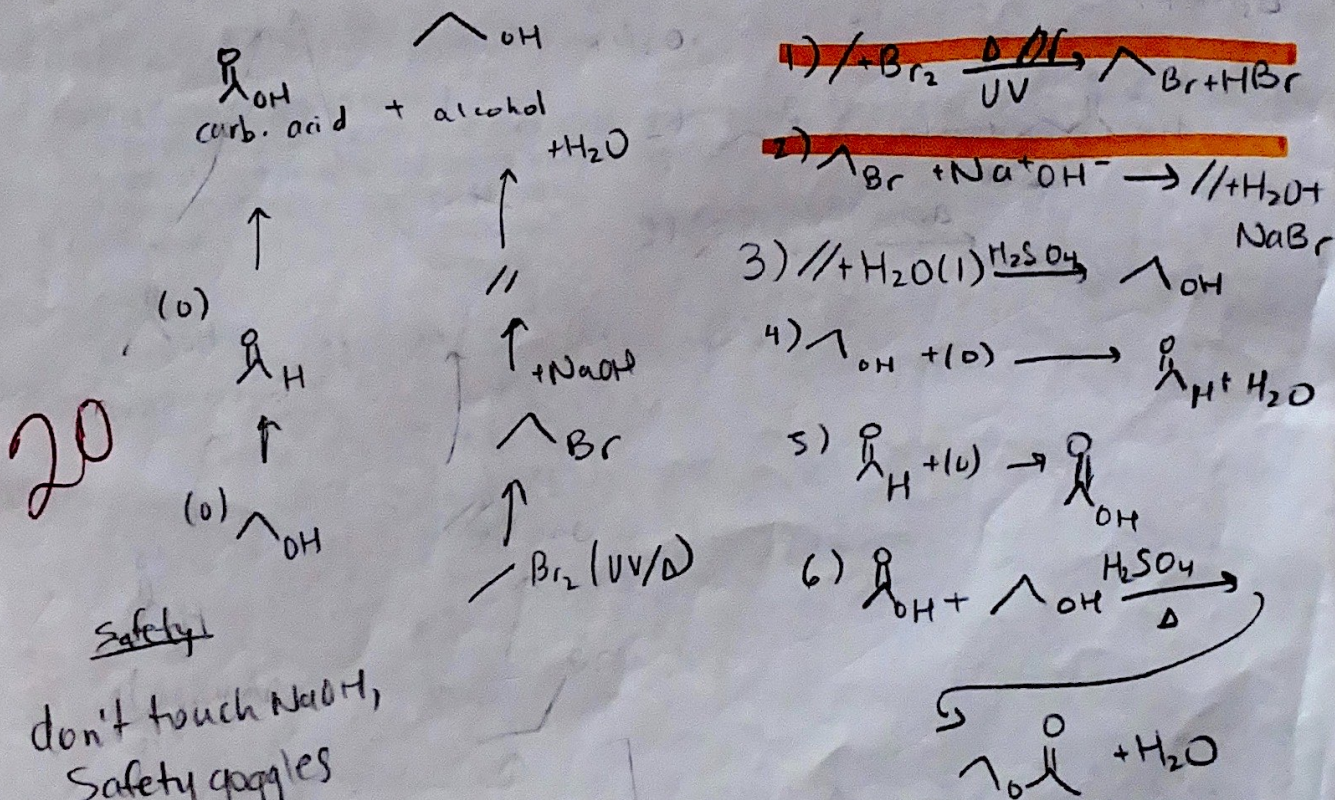 OH
OH
carb. acid + alcohol
+H₂O
(o)
H
//
+NaOH
Br
(o)
OH
Br₂ (UV/Δ)
20
Safety!
don't touch NaOH,
Safety goggles
1) / + Br₂ Δ or UV → Br + HBr
2) Br + Na⁺OH⁻ → // + H₂O +
NaBr
3) // + H₂O(l) H₂SO₄ → OH
4) OH + (o) → O H + H₂O
5) O H + (o) → O OH
6) O OH + OH H₂SO₄ Δ →
O O + H₂O